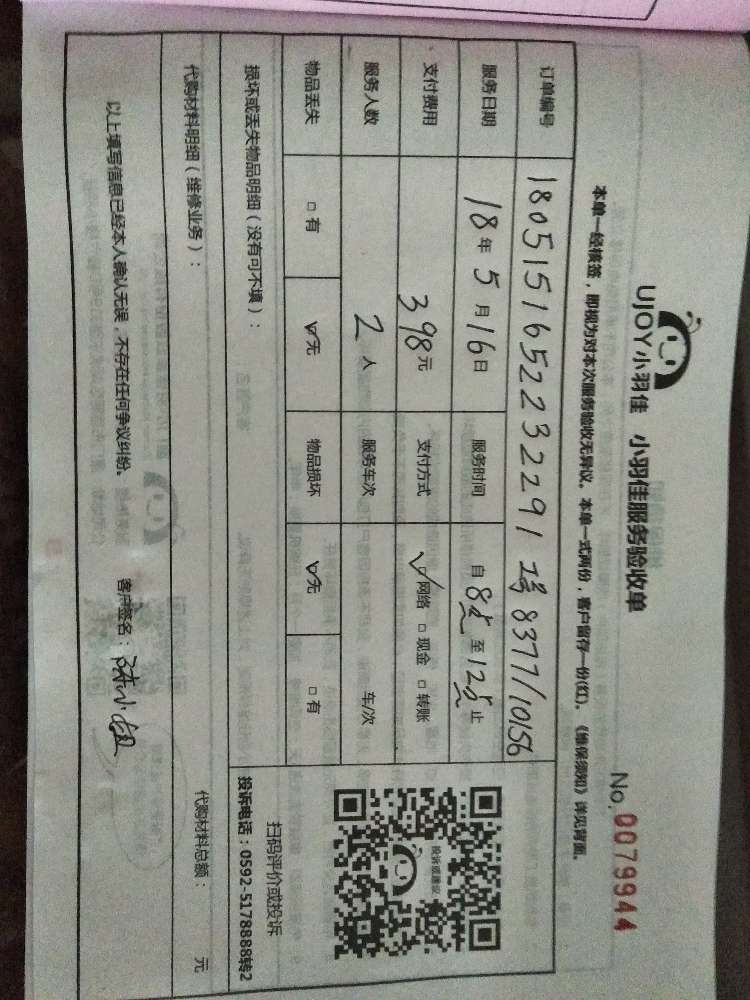 UJOY小羽佳 小羽佳服务验收单
No.0079944
本单一经核签，即视为对本次服务验收无异议。本单一式两份，客户留存一份(红)。《维保须知》详见背面。
订单编号 1805151652232291 工号 8377/10156
服务日期 18年5月16日 服务时间 自8点至12点止
支付费用 398元 支付方式 ☑网络 □现金 □转账
服务人数 2人 服务车次 车/次
物品丢失 □有 ☑无 物品损坏 ☑无 □有
投诉或建议
扫码评价或投诉
投诉电话：0592-5178888转2
损坏或丢失物品明细（没有可不填）：
代购材料明细（维修业务）： 代购材料总额： 元
以上填写信息已经本人确认无误，不存在任何争议纠纷。 客户签名：陈小姐